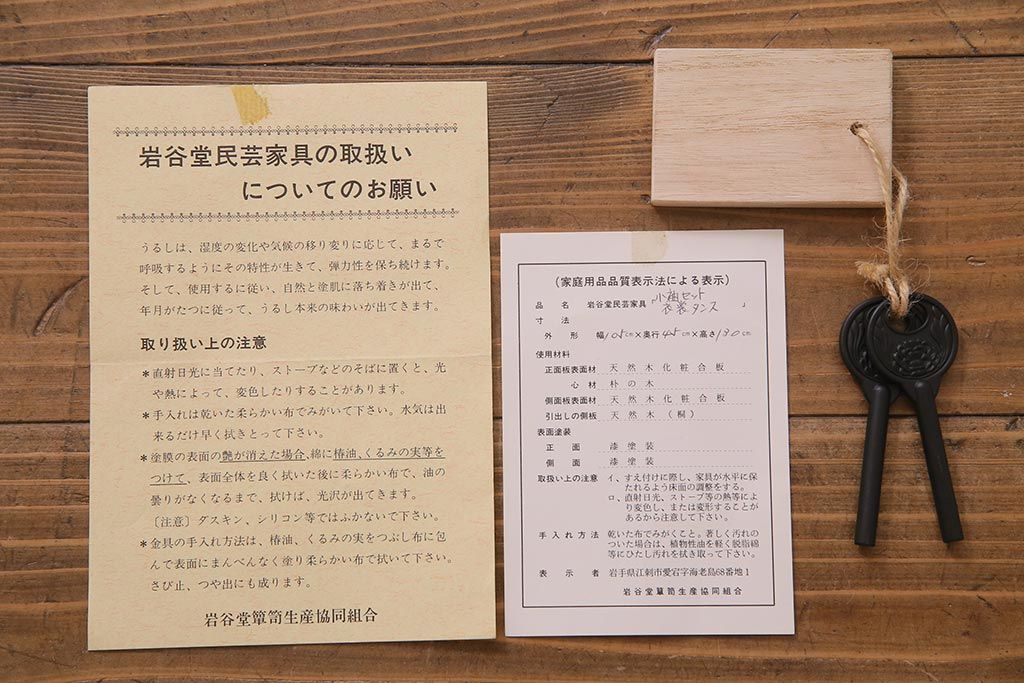 岩谷堂民芸家具の取扱い
についてのお願い
うるしは、湿度の変化や気候の移り変りに応じて、まるで
呼吸するようにその特性が生きて、弾力性を保ち続けます。
そして、使用するに従い、自然と塗肌に落ち着きが出て、
年月がたつに従って、うるし本来の味わいが出てきます。
取り扱い上の注意
*直射日光に当てたり、ストーブなどのそばに置くと、光
や熱によって、変色したりすることがあります。
*手入れは乾いた柔らかい布でみがいて下さい。水気は出
来るだけ早く拭きとって下さい。
*塗膜の表面の艶が消えた場合、綿に椿油、くるみの実等を
つけて、表面全体を良く拭いた後に柔らかい布で、油の
曇りがなくなるまで、拭けば、光沢が出てきます。
〔注意〕ダスキン、シリコン等ではふかないで下さい。
*金具の手入れ方法は、椿油、くるみの実をつぶし布に包
んで表面にまんべんなく塗り柔らかい布で拭いて下さい。
さび止、つや出にも成ります。
岩谷堂簞笥生産協同組合
(家庭用品品質表示法による表示)
品名 岩谷堂民芸家具「小袖セット
衣裳タンス」
寸法
外形 幅105cm×奥行45cm×高さ130cm
使用材料
正面板表面材 天然木化粧合板
心材 朴の木
側面板表面材 天然木化粧合板
引出しの側板 天然木(桐)
表面塗装
正面 漆塗装
側面 漆塗装
取扱い上の注意 イ、すえ付けに際し、家具が水平に保
たれるよう床面の調整をする。
ロ、直射日光、ストーブ等の熱等によ
り変色し、または変形することが
あるから注意して下さい。
手入れ方法 乾いた布でみがくこと。著しく汚れの
ついた場合は、植物性油を軽く脱脂綿
等にひたし汚れを拭き取って下さい。
表示者 岩手県江刺市愛宕字海老島68番地1
岩谷堂簞笥生産協同組合